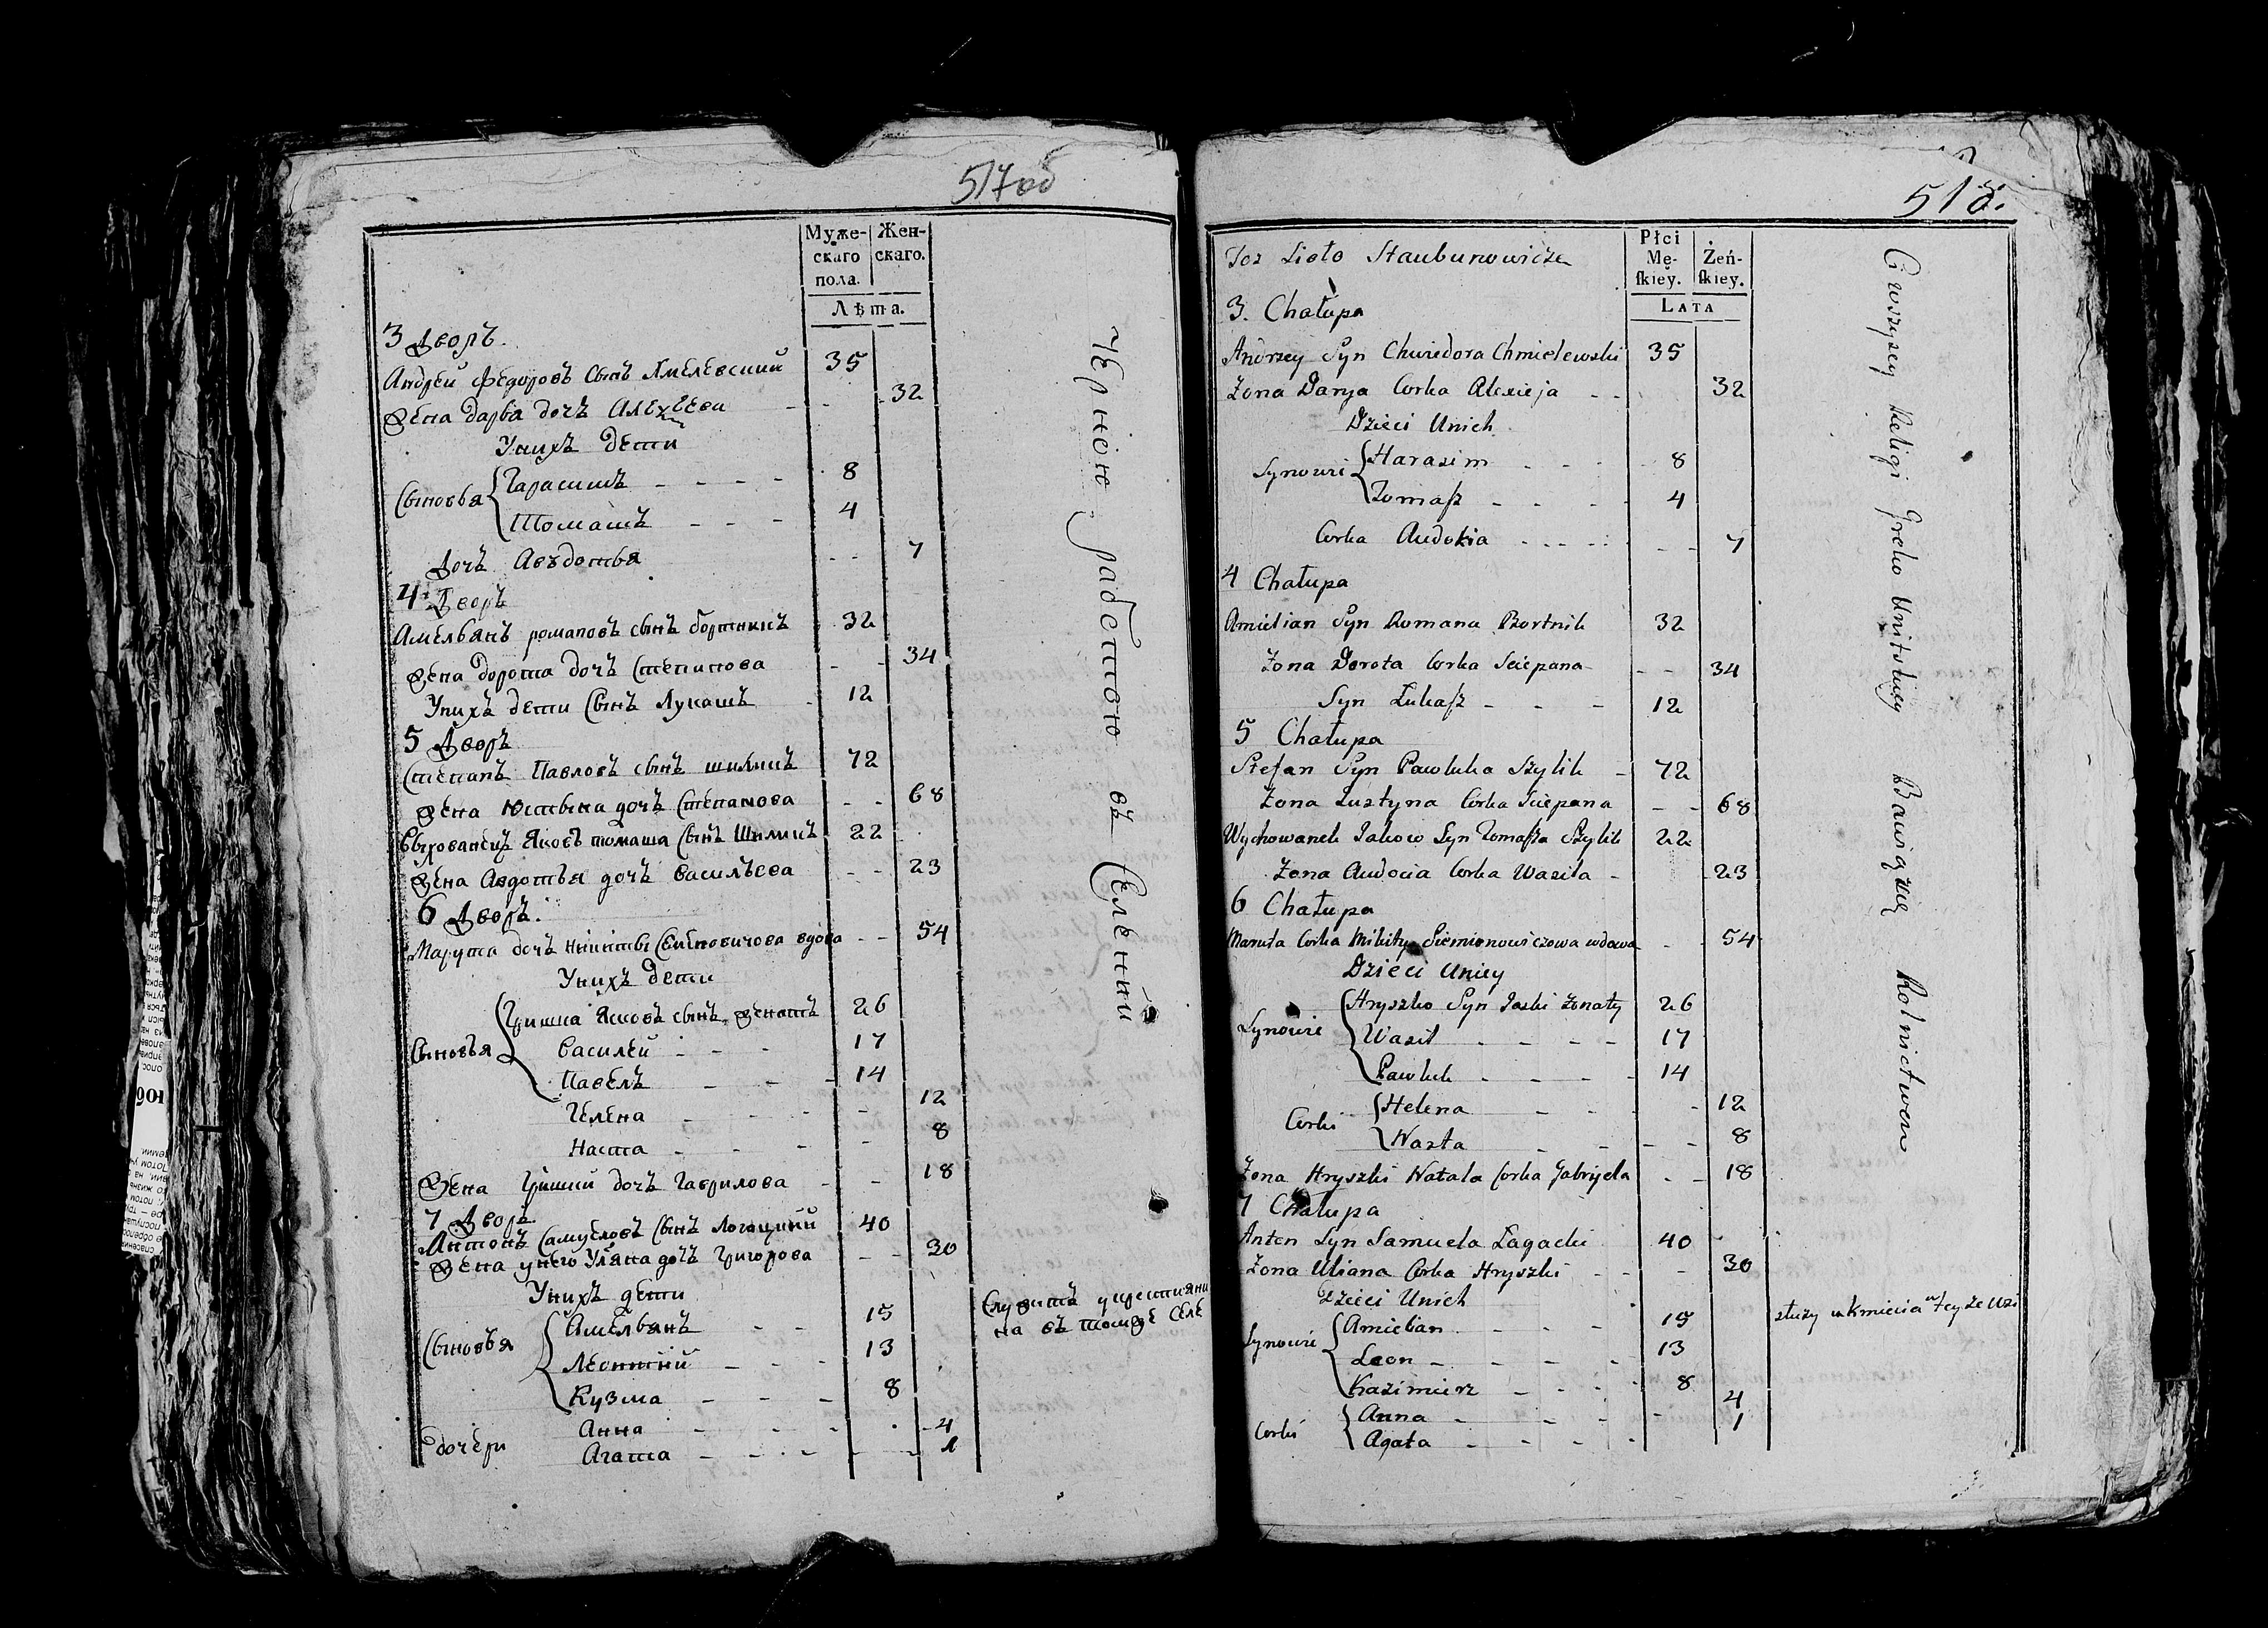 517об
Муже- Жен-
скаго скаго.
пола.
Лѣта.
3 Дворъ.
Андрей Федоровъ сынъ Хмелевский 35
Жена Дарья дочъ Алехѣева - - 32
Уних дети
Сыновья Гарасимъ - - - - 8
Томашъ - - - 4
Дочъ Авъдотья - - 7
4 Дворъ
Амельянъ романовъ сынъ бортникъ 32
Жена дорота дочъ Степанова - - 34
Унихъ дети Сынъ Лукашъ - 12
5 Дворъ
Степанъ Павловъ сынъ шиликъ 72
Жена Юстына дочъ Степанова - - 68
Выхованецъ Яковъ томаша Сынъ Шиликъ 22
Жена Авдотья дочъ Васильева - - 23
6 Дворъ.
Марута дочъ Никиты Семѣновичова вдова - - 54
Унихъ дети
Гришка Яковъ сынъ женатъ 26
Сыновья Василей - - - 17
Павелъ - - - 14
Гелена - - - - 12
Наста - - - - 8
Жена Гришки дочъ Гаврилова - - 18
7 Дворъ
Антонъ Самуеловъ Сынъ Логацкий 40
Жена унего Уляна дочъ Григорова - - 30
Унихъ дети
Сыновья Амельянъ - - 15 Служитъ укрестияни
на въ томже Селе
Леонтий - - - 13
Кузма - - - 8
дочери Анна - - - - 4
Агата - - - - - 1
Черною работою въ Селении
518.
Toż Sioło Staubunowicze
Płci
Mę- Żeń-
skiey. skiey.
LATA
3. Chałupa
Andrzey Syn Chwiedora Chmielewski 35
Żona Darya Corka Alexieja - - 32
Dzieci Unich
Synowie Harasim - - - 8
Tomasz - - - 4
Corka Audokia - - - - - - 7
4 Chałupa
Amielian Syn Romana Bortnik 32
Żona Dorota Corka Sciepana - - 34
Syn Łukasz - - - 12
5 Chałupa
Stefan Syn Pawluka Szylik - 72
Żona Justyna Corka Sciepana - - 68
Wychowanek Jakow Syn Tomasza Szylik 22
Żona Audocia Corka Wasila - - 23
6 Chałupa
Maruta Corka Mikity Siemionowiczowa wdowa - - 54
Dzieci Uniey
Hryszko Syn Jaski żonaty 26
Synowie Wasil - - - - 17
Pawluk - - - - 14
Corki Helena - - - - 12
Nasta - - - 8
Żona Hryszki Natala Corka Gabryela - - 18
7 Chałupa
Anton Syn Samuela Łagacki 40
Żona Uliana Corka Hryszki - - - 30
Dzieci Unich
Synowie Amielian - - - 15 służy u kmiecia w tey że Wsi
Leon - - - - 13
Kazimierz - - - 8
Corki Anna - - - - 4
Agata - - - - 1
Ci wszyscy Religi Greko Unitskiey Bawią się Rolnictwem